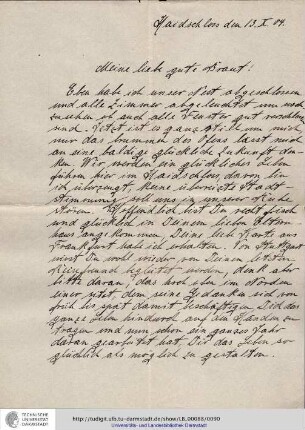 Haidschloss den 13. X 04.
Meine liebe gute Braut!
Eben habe ich unser Nest abgeschlossen
und alle Zimmer abgeleuchtet um nach
zusehen ob auch alle Fenster gut verschlossen
sind. Jetzt ist es ganz still um mich
nur das brennen des lässt mich
an eine baldige glückliche Zukunft den
ken. Wir werden ein glückliches Leben
führen hier im Haidschloss, davon bin
ich überzeugt, keine Stadt-
stimmung soll uns in unserer Ruhe
stören. Hoffentlich bist Du recht frisch
und glücklich in Deinem lieben Eltern
haus angekommen. Deine liebe Karte aus
Frankfurt habe ich erhalten. Von Stuttgart
wirst Du wohl wieder von Deinem letzten
begleitet worden, denk aber
bitte daran, das noch oben im Norden
einer sitzt, dem seine Gedanken sich von
früh bis spät damit beschäftigen Dich das
ganze Leben hindurch auf den Händen zu
tragen und nun schon ein ganzes Jahr
daran gearbeitet hat Dir das Leben so
glücklich als möglich zu gestalten.
TECHNISCHE UNIVERSITÄT DARMSTADT
http://tudigit.ulb.tu-darmstadt.de/show/LB_00083/0090
Universitäts- und Landesbibliothek Darmstadt